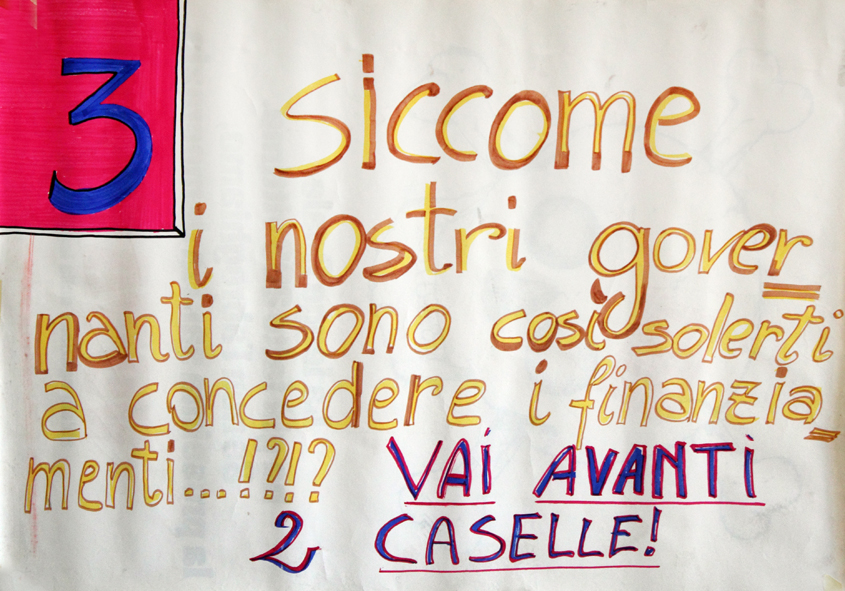 3
Siccome
i nostri gover=
nanti sono così solerti
a concedere i finanzia=
menti...!?!?
VAI AVANTI
2 CASELLE!